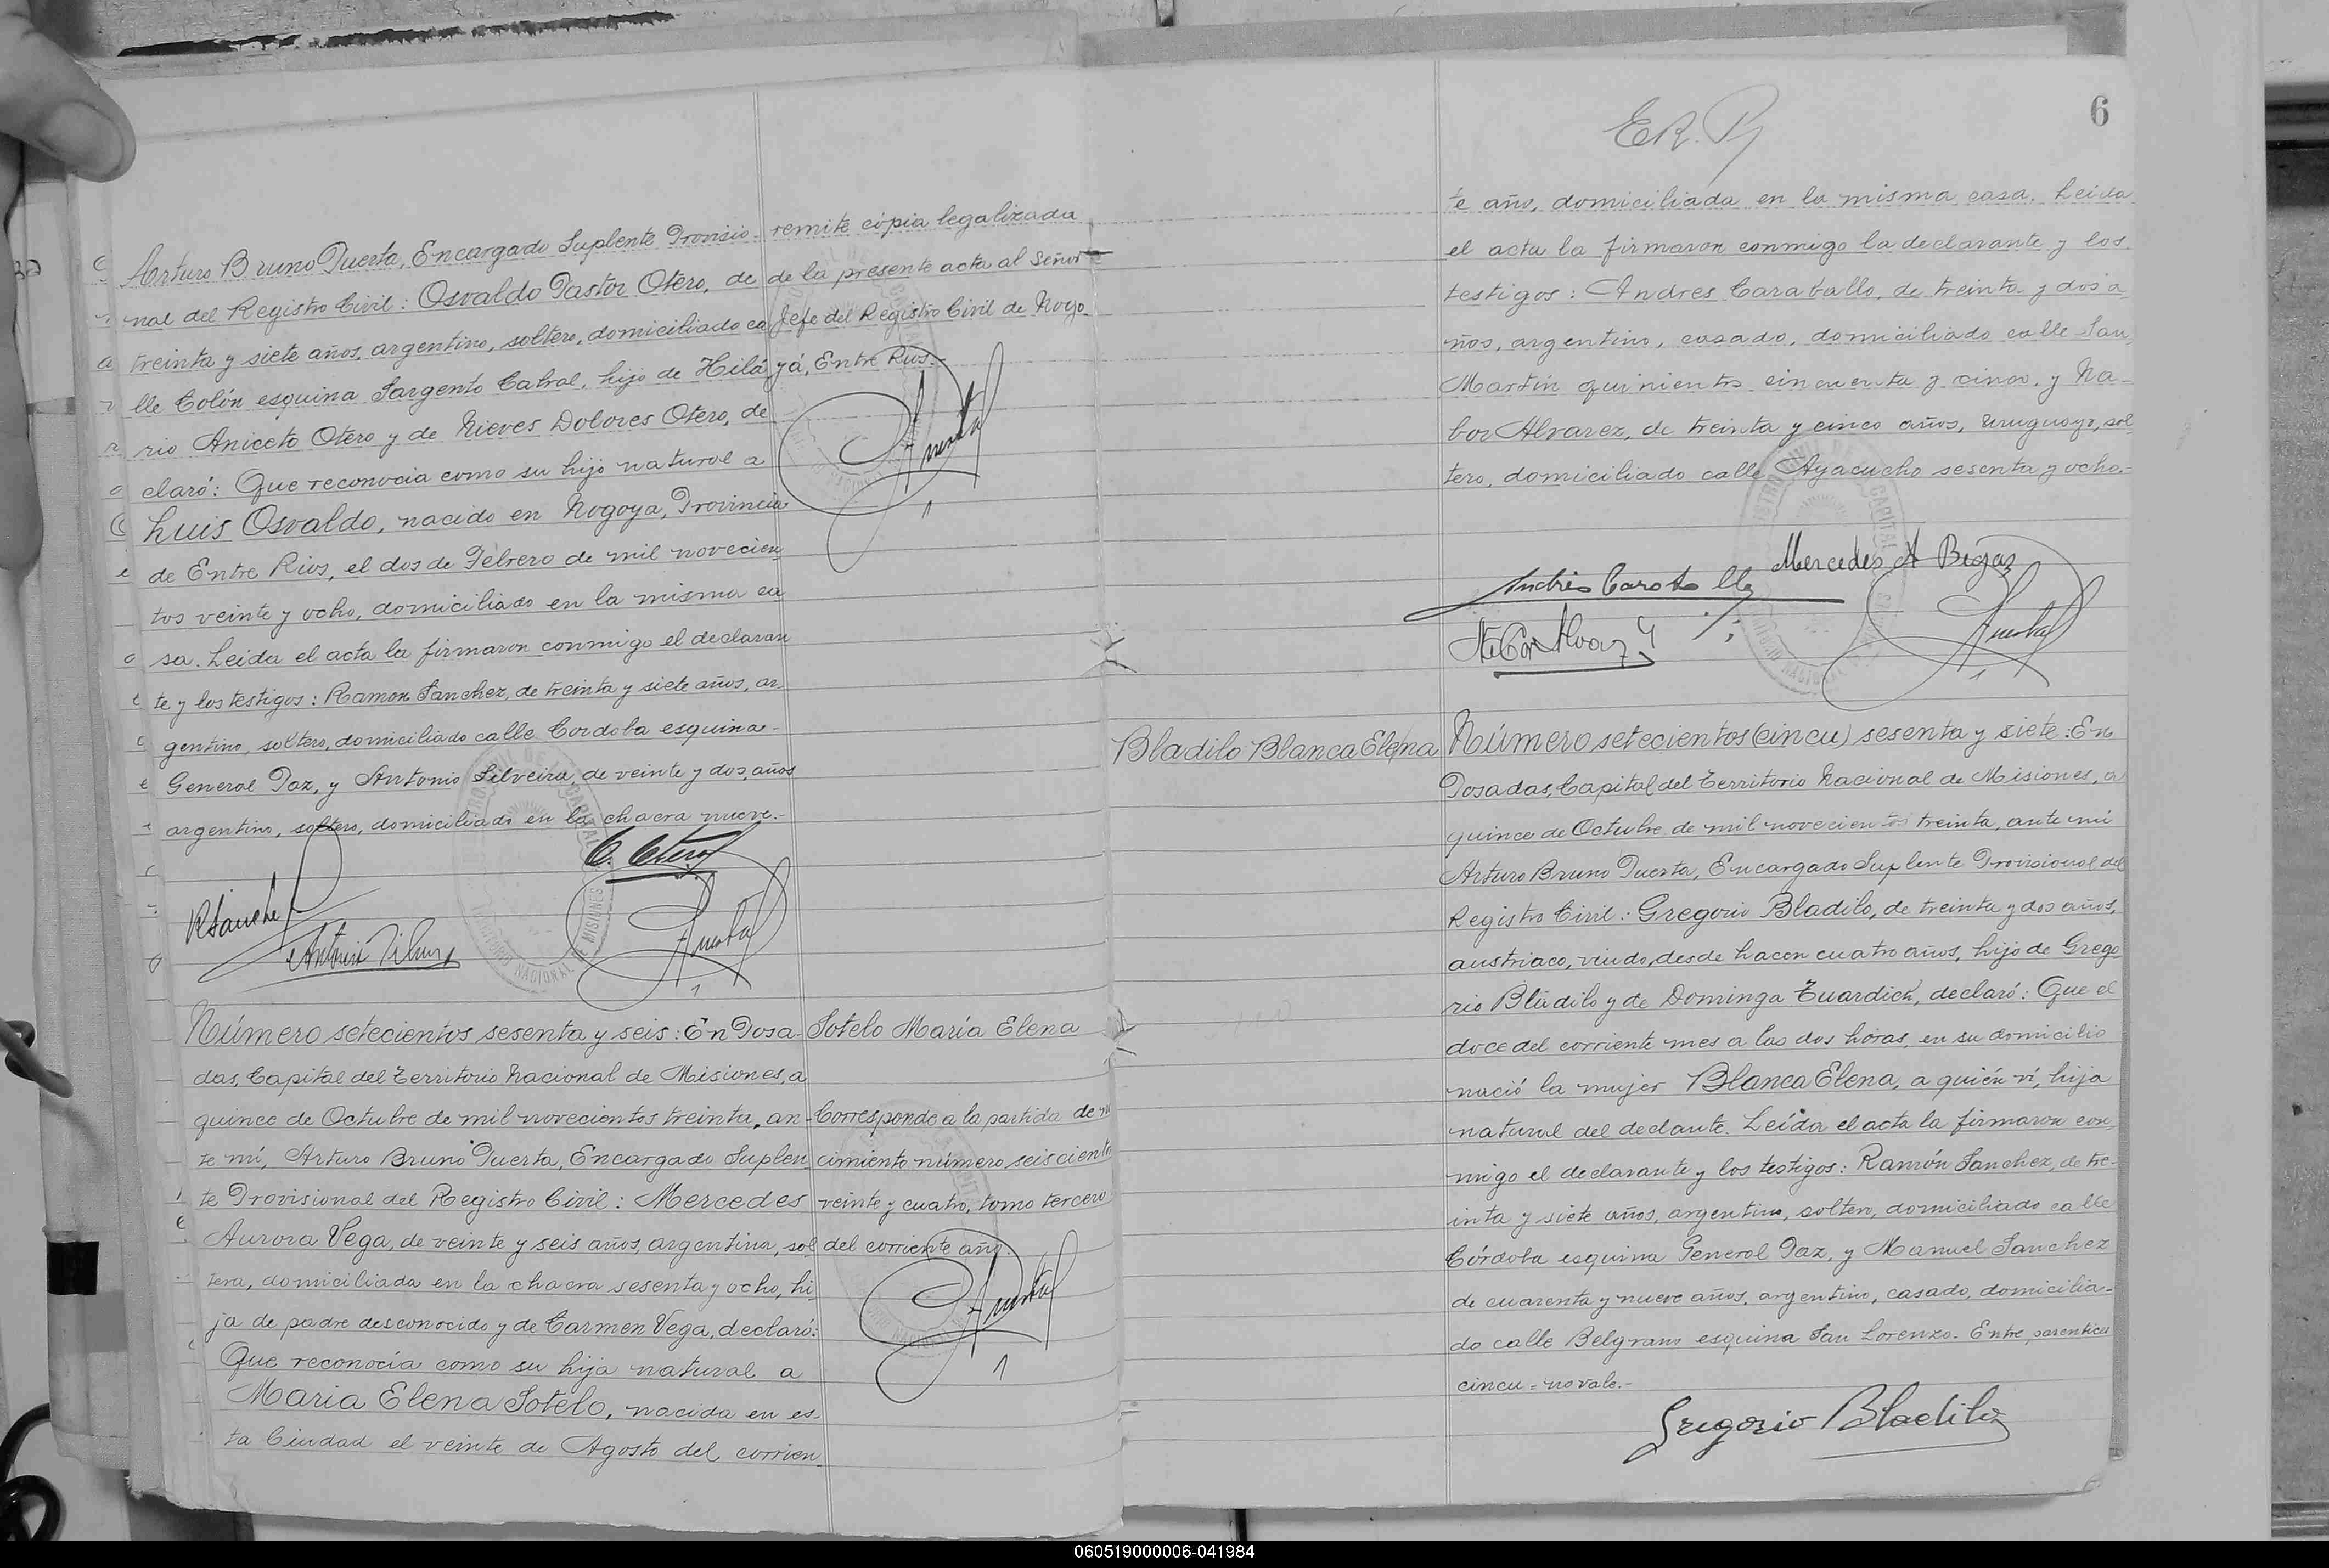 Arturo Bruno Puerta, Encargado Suplente Provisio-
nal del Registro Civil: Osvaldo Pastor Otero, de
treinta y siete años, argentino, soltero, domiciliado ca
lle Colón esquina Sargento Cabral, hijo de Hila
rio Aniceto Otero y de Nieves Dolores Otero, de
claró: Que reconocia como su hijo natural a
Luis Osvaldo, nacido en Nogoya, Provincia
de Entre Rios, el dos de Febrero de mil novecien
tos veinte y ocho, domiciliado en la misma ca
sa. Leida el acta la firmaron conmigo el declaran
te y los testigos: Ramon Sanchez, de treinta y siete años, ar-
gentino, soltero, domiciliado calle Cordoba esquina-
General Paz, y Antonio Silveira, de veinte y dos años
argentino, soltero, domiciliado en la chacra nueve.-
remite cópia legalizada
de la presente acta al Señor
Jefe del Registro Civil de Nogo
yá, Entre Rios.-
O. Otero
RSanchez
Número setecientos sesenta y seis: En Posa-
das, Capital del Territorio Nacional de Misiones, a
quince de Octubre de mil novecientos treinta, an-
te mí, Arturo Bruno Puerta, Encargado Suplen
te Provisional del Registro Civil: Mercedes
Aurora Vega, de veinte y seis años, argentina, sol
tera, domiciliada en la chacra sesenta y ocho, hi-
ja de padre desconocido y de Carmen Vega, declaró:
Que reconocía como su hija natural a
Maria Elena Sotelo, nacida en es-
ta Ciudad el veinte de Agosto del corrien-
Sotelo María Elena
Corresponde a la partida de na
cimiento número seiscientos
veinte y cuatro, tomo tercero
del corriente año
6
E.R.P
te año, domiciliada en la misma casa. Leida
el acta la firmaron conmigo la declarante y los
testigos: Andres Caraballo, de treinta y dos a
ños, argentino, casado, domiciliado calle San
Martín quinientos cincuenta y cinco, y Na-
bor Alvarez, de treinta y cinco años, Uruguayo, sol
tero, domiciliado calle Ayacucho sesenta y ocho.-
Mercedes A
Andrés Caraballo
Bladilo Blanca Elena
Número setecientos (cincu) sesenta y siete: En
Posadas, Capital del Territorio Nacional de Misiones, a
quince de Octubre de mil novecientos treinta, ante mí
Arturo Bruno Puerta, Encargado Suplente Provisional del
Registro Civil: Gregorio Bladilo, de treinta y dos años,
austriaco, viudo, desde hacen cuatro años, hijo de Grego
rio Bládilo y de Dominga Tuardich, declaró: Que el
doce del corriente mes a las dos horas, en su domicilio
nació la mujer Blanca Elena, a quién ví, hija
natural del declante. Leída el acta la firmaron con
migo el declarante y los testigos: Ramón Sanchez, de tre-
inta y siete años, argentino, soltero, domiciliado calle
Córdoba esquina General Paz, y Manuel Sanchez
de cuarenta y nueve años, argentino, casado, domicilia-
do calle Belgrano esquina San Lorenzo. Entre parentesis
cincu = no vale.-
Gregorio Bladilo
060519000006-041984